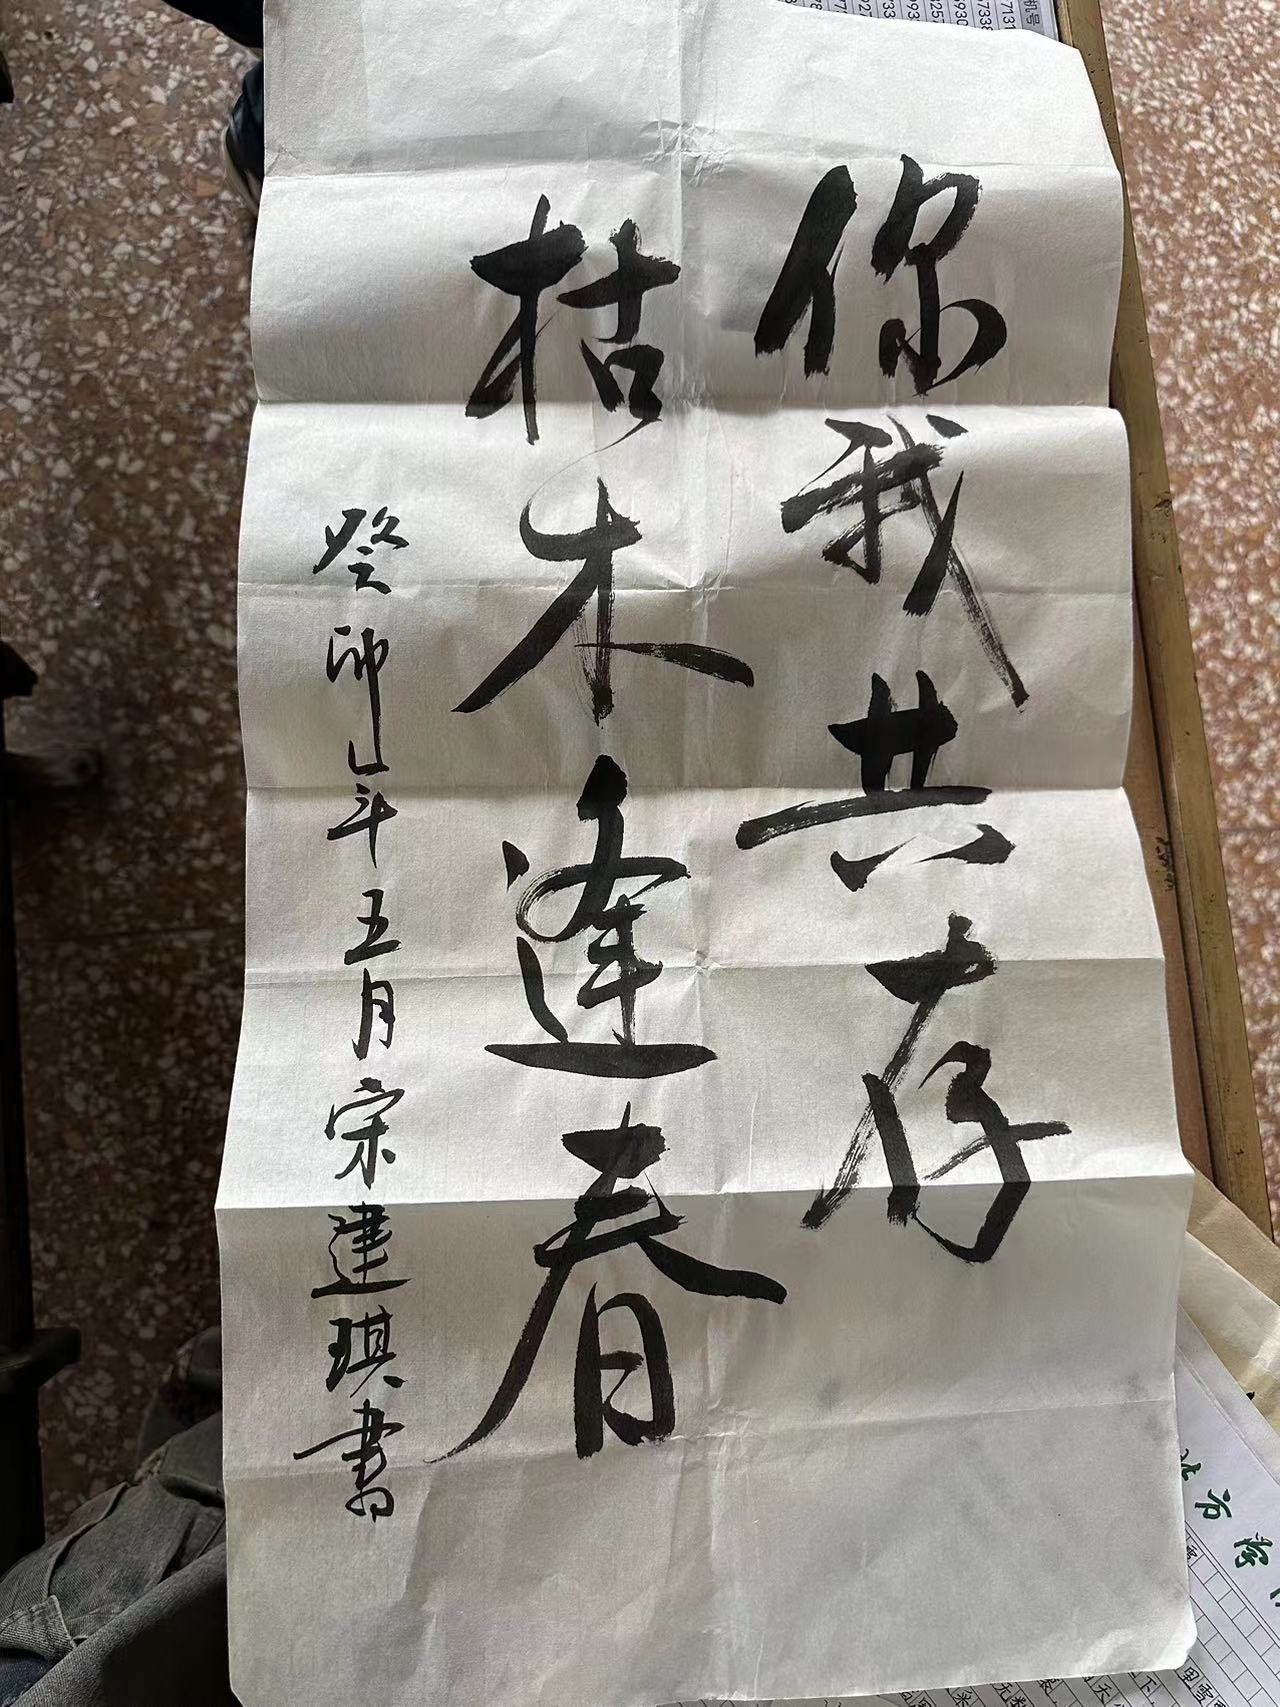 你我共存
枯木逢春
癸卯年五月宋建琪書